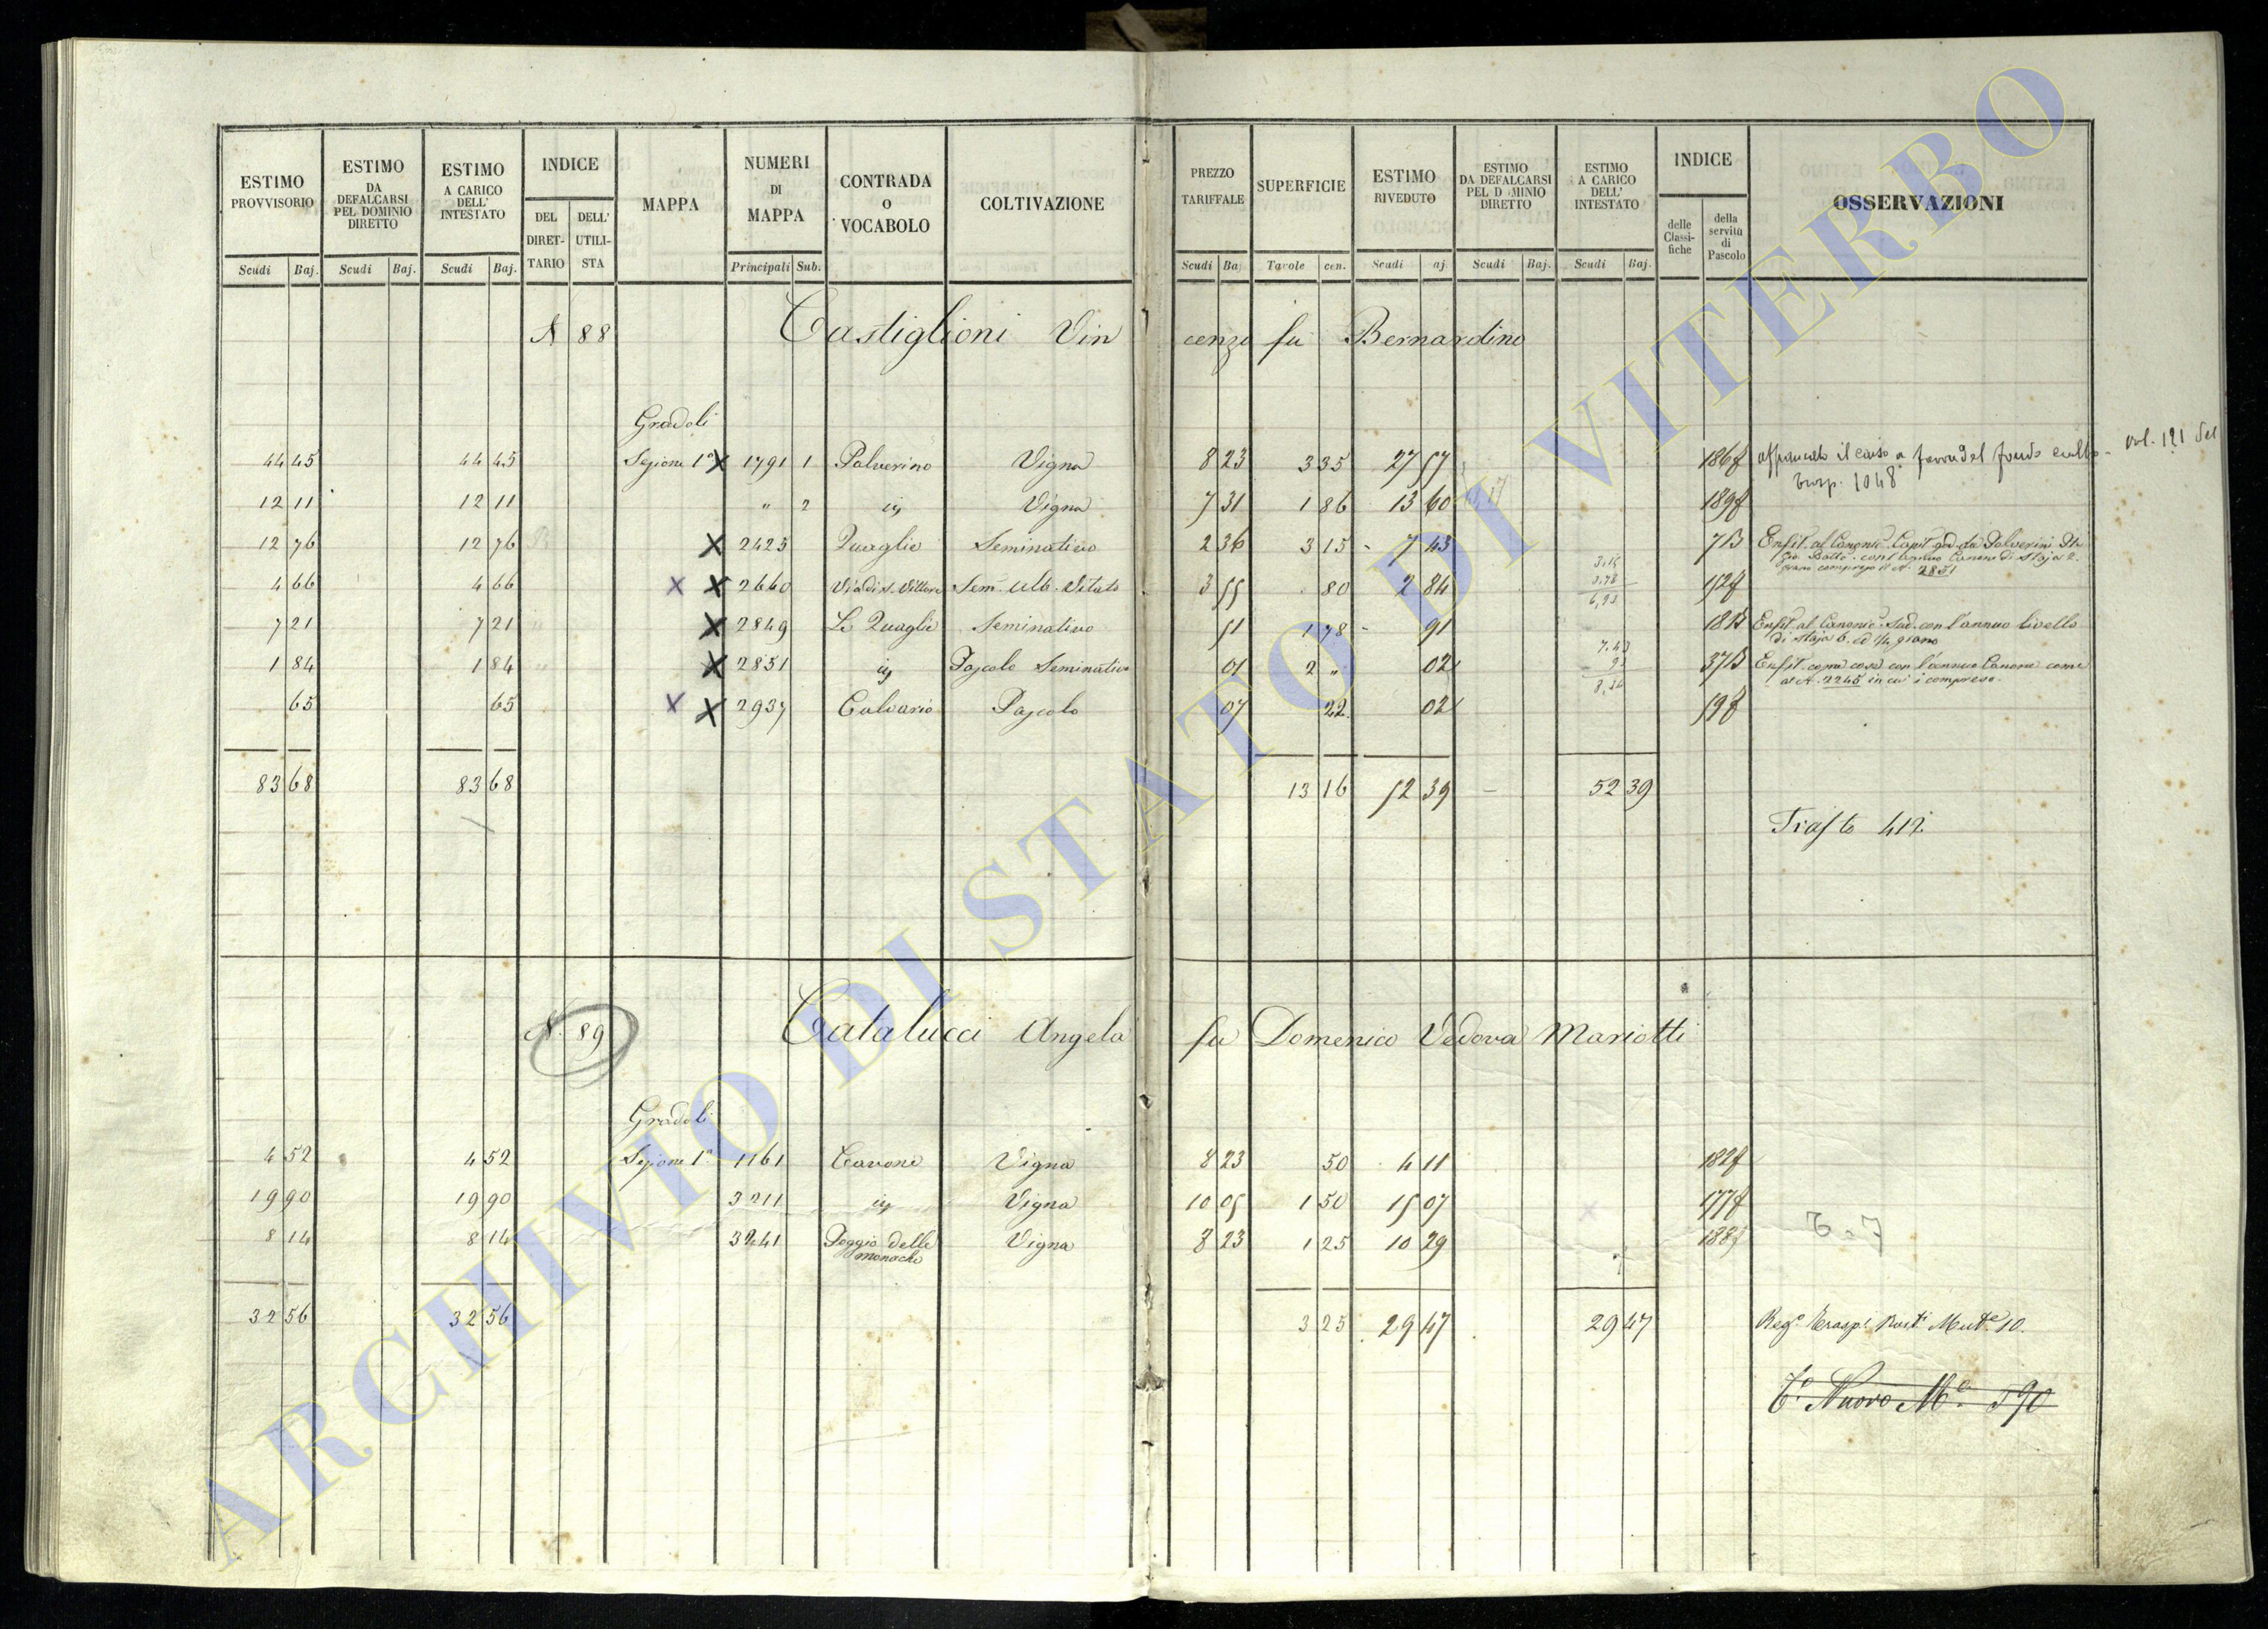 ESTIMO PROVVISORIO | ESTIMO DA DEFALCARSI PEL DOMINIO DIRETTO | ESTIMO A CARICO DELL' INTESTATO | INDICE | MAPPA | NUMERI DI MAPPA | CONTRADA O VOCABOLO | COLTIVAZIONE | PREZZO TARIFFALE | SUPERFICIE | ESTIMO RIVEDUTO | ESTIMO DA DEFALCARSI PEL D MINIO DIRETTO | ESTIMO A CARICO DELL' INTESTATO | INDICE | OSSERVAZIONI
DEL DIRETTARIO | DELL' UTILISTA | delle Classifiche | della servitù di Pascolo
Scudi | Baj. | Scudi | Baj. | Scudi | Baj. | Principali | Sub. | Scudi | Ba | Tavole | cen. | Scudi | aj. | Scudi | Baj. | Scudi | Baj.
N 88 Castiglioni Vincenzo fu Bernardino
Gradoli
44 45 | 44 45 | Sezione 1ª X | 1791 | 1 | Palverino | Vigna | 8 23 | 3 35 | 27 57 | 186 | il a del fondo vol. 121 del
1048
12 11 | 12 11 | " | 2 | id | Vigna | 7 31 | 1 86 | 13 60 | 189
12 76 | 12 76 | X | 2425 | Quaglie | Seminativo | 2 36 | 3 15 | 7 43 | 7B | Enfit. al Canonic. Capit. Gio. Batta. con l'annuo Canone di Staja 2. grano compreso il N. 2851
3,15
3,78
6,93
4 66 | 4 66 | X X | 2660 | Via di S. Vittore | Sem. Alb. Vitato | 3 55 | 80 | 2 84 | 152
7 21 | 7 21 | X | 2849 | Le Quaglie | Seminativo | 51 | 1 78 | 91 | 18B | Enfit. al Canonic. Sud. con l'annuo livello di staja 6. ed 1/4 grano
7.43
91
8,34
1 84 | 1 84 | X | 2851 | id | Pascolo Seminativo | 01 | 2 " | 02 | 37B | Enfit. come cosa con l'annuo Canone come al N. 2245 in cui è compreso.
65 | 65 | X X | 2937 | Calvario | Pascolo | 07 | 22 | 02 | 19
83 68 | 83 68 | 13 16 | 52 39 | - | 52 39
412
N. 89 Catalucci Angela fu Domenico Vedova Mariotti
Gradoli
4 52 | 4 52 | Sezione 1ª | 1161 | Cavone | Vigna | 8 23 | 50 | 4 11 | 182
19 90 | 19 90 | 3211 | id | Vigna | 10 05 | 1 50 | 15 07 | 177
8 14 | 8 14 | 3241 | Poggio delle monache | Vigna | 8 23 | 1 25 | 10 29 | 188
32 56 | 32 56 | 3 25 | 29 47 | 29 47 | Reg. Trasp. Rust. Mut. 10.
Nuovo 590
ARCHIVIO DI STATO DI VITERBO